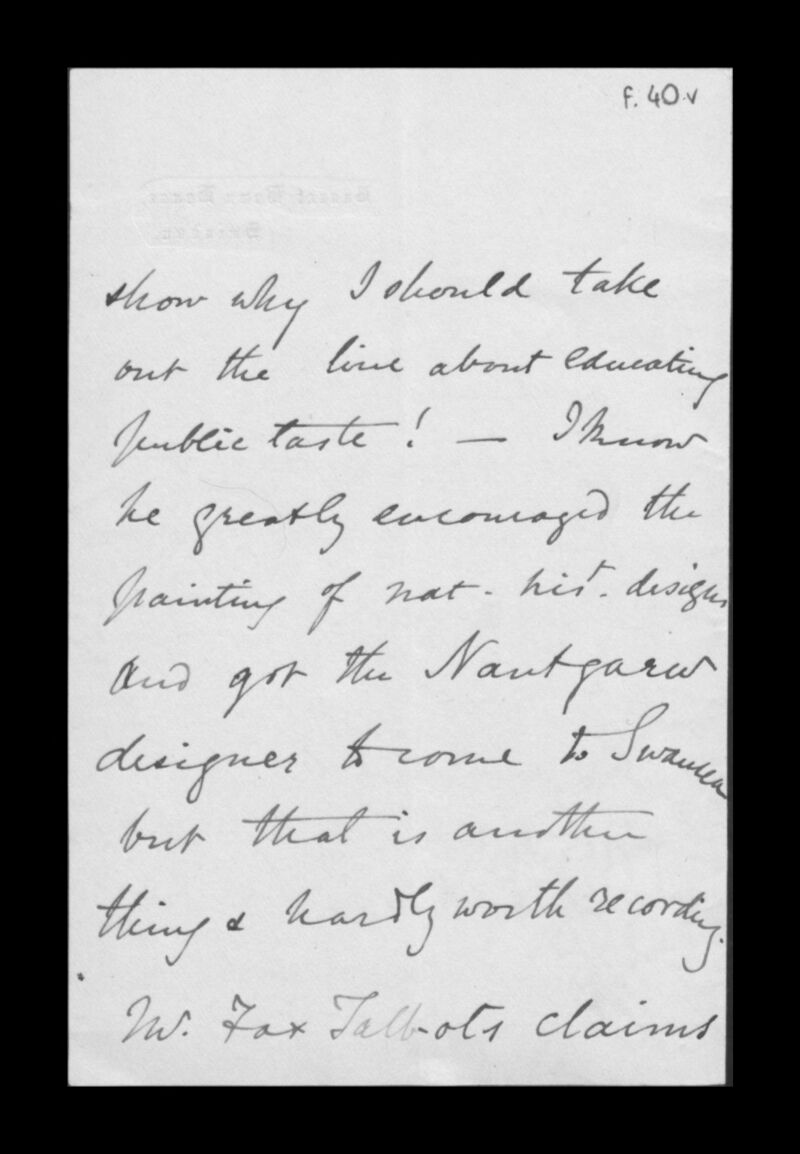 f. 40.v
show why I should take
out the line about educating
public taste! — I know
he greatly encouraged the
painting of nat. hist. designs
and got the Nantgarw
designer to come to Swansea
but that is another
thing & hardly worth recording.
Mr. Fox Talbots claims